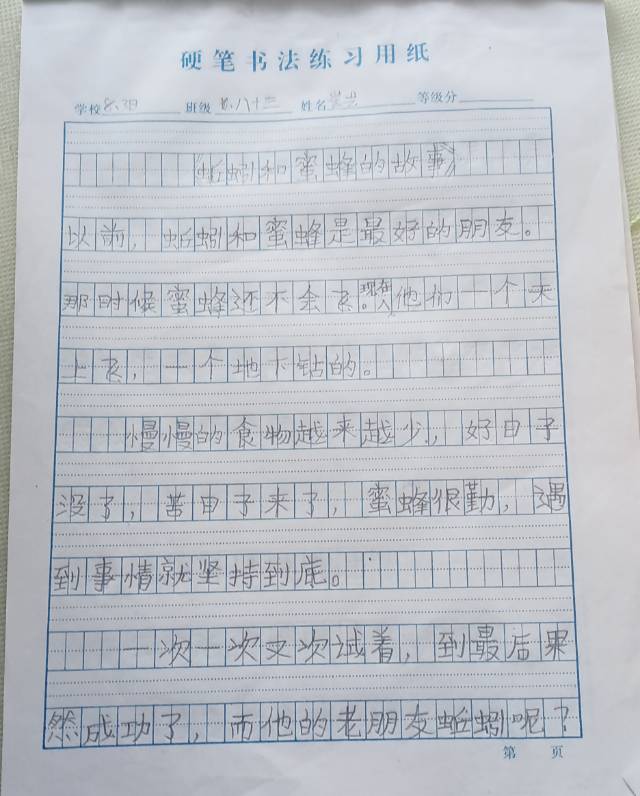 硬笔书法练习用纸
学校 班级 八十三 姓名 等级分
《蚯蚓和蜜蜂的故事》
以前，蚯蚓和蜜蜂是最好的朋友。
那时候蜜蜂还不会飞。现在他们一个天
上飞，一个地下钻的。
慢慢的食物越来越少，好日子
没了，苦日子来了，蜜蜂很勤，遇
到事情就坚持到底。
一次一次又次试着，到最后果
然成功了，而他的老朋友蚯蚓呢？
第 页